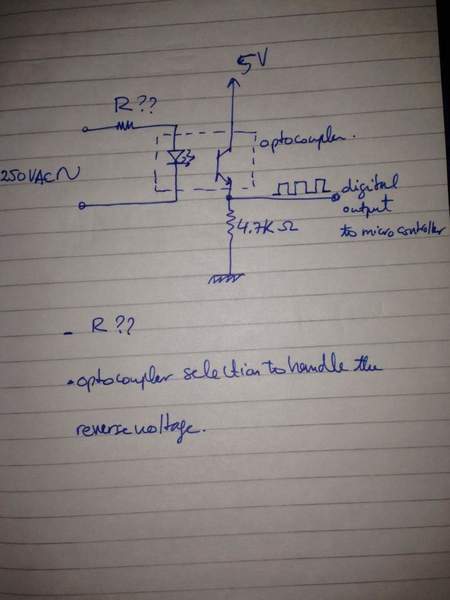 5V
R ??
optocoupler.
250VAC~
digital
output
to microcontroller
4.7K Ω
- R ??
• optocoupler selection to handle the
reverse voltage.